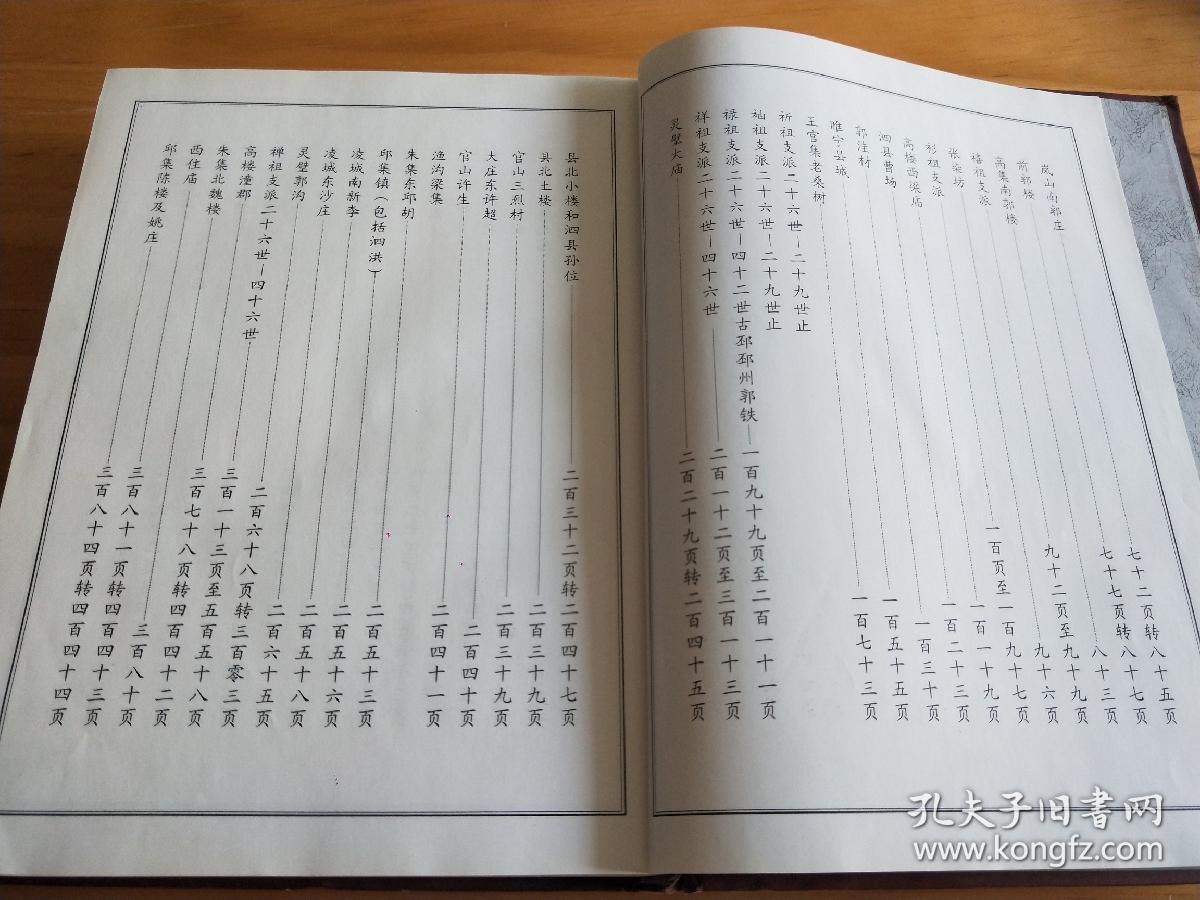 岚山南郭庄 七十二页转八十五页
前郭楼 七十七页转八十七页
高集南郭楼 八十三页
禧祖支派 九十二页至九十九页
张染坊 九十六页
衫祖支派 一百页至一百九十七页
高楼西梁庙 一百一十九页
泗县曹场 一百二十三页
郭洼村 一百三十页
睢宁县城 一百五十五页
王宫集老桑树 一百七十三页
祈祖支派二十六世-二十九世止
祉祖支派二十六世-二十九世止
禄祖支派二十六世-四十二世古邳邳州郭铁 一百九十九页至二百一十一页
祥祖支派二十六世-四十六世 二百一十二页至三百一十三页
灵璧大庙 二百二十九页转二百四十五页
县北小楼和泗县孙位 二百三十二页转二百四十七页
县北土楼 二百三十九页
官山三烈村 二百三十九页
大庄东许超
官山许生 二百四十页
渔沟梁集 二百四十一页
朱集东邱胡
邱集镇（包括泗洪） 二百五十三页
凌城南新李 二百五十六页
凌城东沙庄 二百五十八页
灵璧郭沟 二百六十五页
禅祖支派二十六世-四十六世 二百六十八页转三百零三页
高楼潼郡 三百一十三页至五百五十八页
朱集北魏楼 三百七十八页转四百四十二页
西住庙 三百八十页
邱集陈楼及姚庄 三百八十一页转四百四十三页
三百八十四页转四百四十四页
孔夫子旧书网
www.kongfz.com